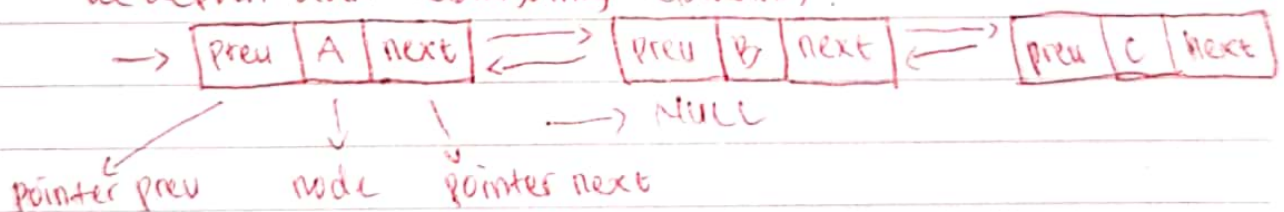 → prev A next ⇄ prev B next ⇄ prev C next
→ NULL
pointer prev node pointer next